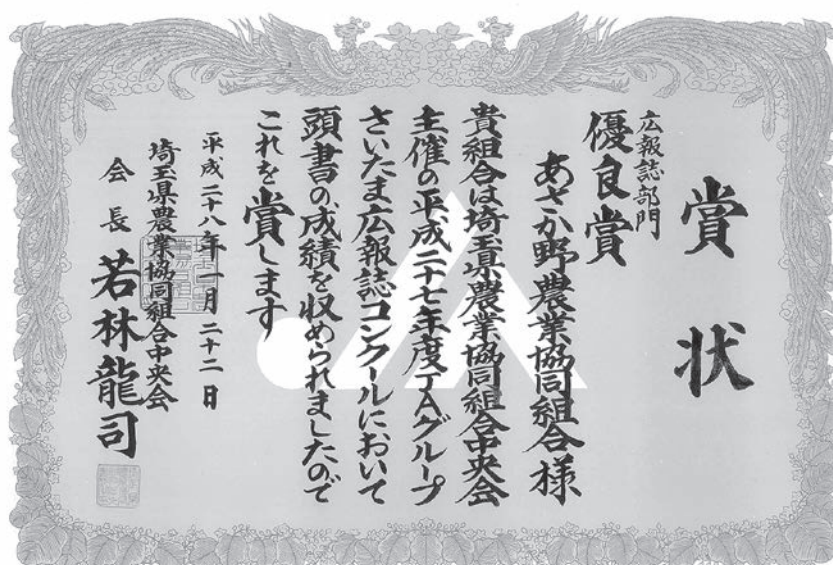 賞状
広報誌部門
優良賞
あさか野農業協同組合様
貴組合は埼玉県農業協同組合中央会
主催の平成二十七年度JAグループ
さいたま広報誌コンクールにおいて
頭書の成績を収められましたので
これを賞します
平成二十八年一月二十二日
埼玉県農業協同組合中央会
会長 若林龍司